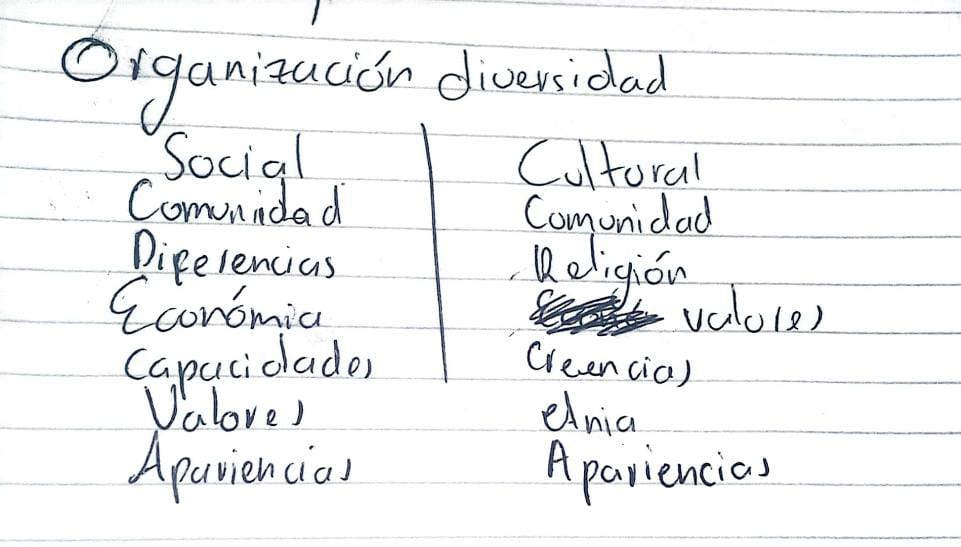 Organización diversidad
Social
Comunidad
Diferencias
Económia
Capacidades
Valores
Apariencias
Cultural
Comunidad
Religión
valores
Creencias
etnia
Apariencias